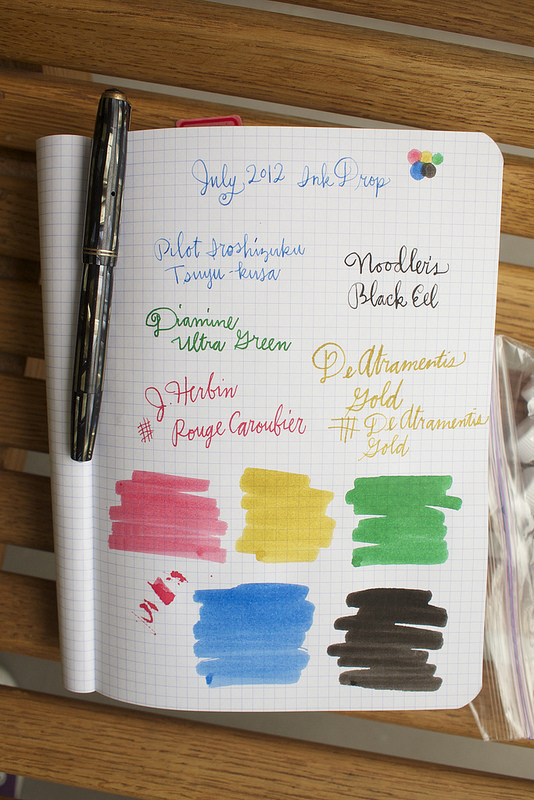 July 2012 Ink Drop
Pilot Iroshizuku
Tsuyu-kusa
Noodler's
Black Eel
Diamine
Ultra Green
De Atramentis
Gold
J. Herbin
# Rouge Caroubier
# De Atramentis
Gold